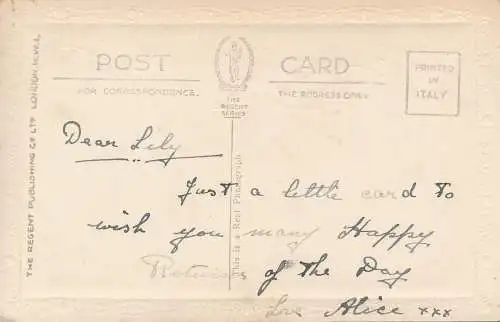 POST CARD
FOR CORRESPONDENCE.
THE ADDRESS ONLY.
THE REGENT SERIES
PRINTED IN ITALY
THE REGENT PUBLISHING CO LTD LONDON. N.W.1.
This is a Real Photograph
Dear Lily
Just a little card to
wish you many Happy
Returns of the Day
Love Alice xxx